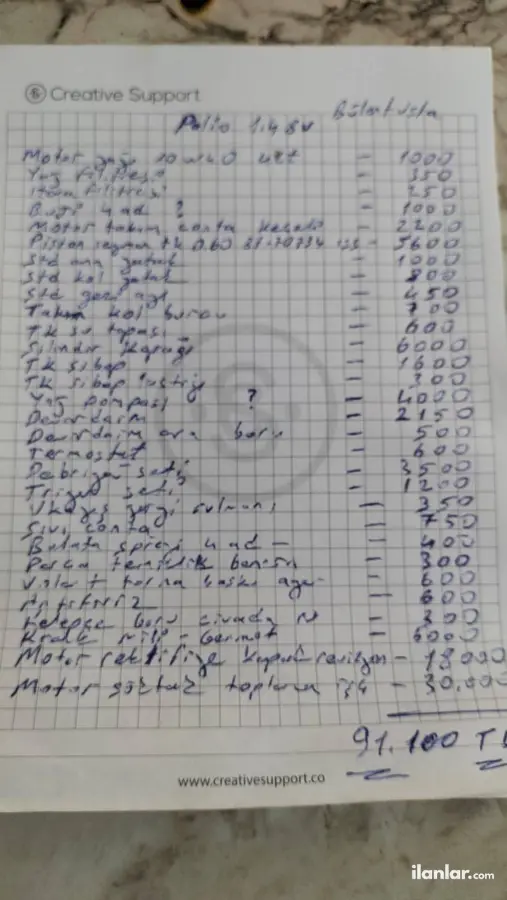 Creative Support
Bülent usta
Palio 1.4 8V
Motor yağı 10w40 4Lt - 1000
Yağ filitresi - 350
Hava filitresi - 250
Buji 4 ad ? - 1000
Motor takım conta - 2200
Piston segman tk 0.60 - 5600
Std ana yatak - 1000
Std kol yatak - 800
Std gezi ayı - 450
Takım kol burcu - 700
TK su tapası - 600
Silindir kapağı - 6000
TK sibap - 1600
TK sibap lastiği - 300
Yağ pompası ? - 4000
Devirdaim - 2150
Devirdaim ara boru - 500
Termostat - 600
Debriyaj seti - 3500
Triger seti - 1200
V kayış rulmanı - 350
Sıvı conta - 750
Balata spreyi 4 ad - 400
Parça temizlik benzin - 300
Volant torna baskı - 600
Antifiriz - 600
Kelepçe boru civada - 300
Krank mili - 5000
Motor rektifiye kapak revizyon - 18000
Motor söktak toplama işç - 30.000
91.100 TL
www.creativesupport.co
ilanlar.com